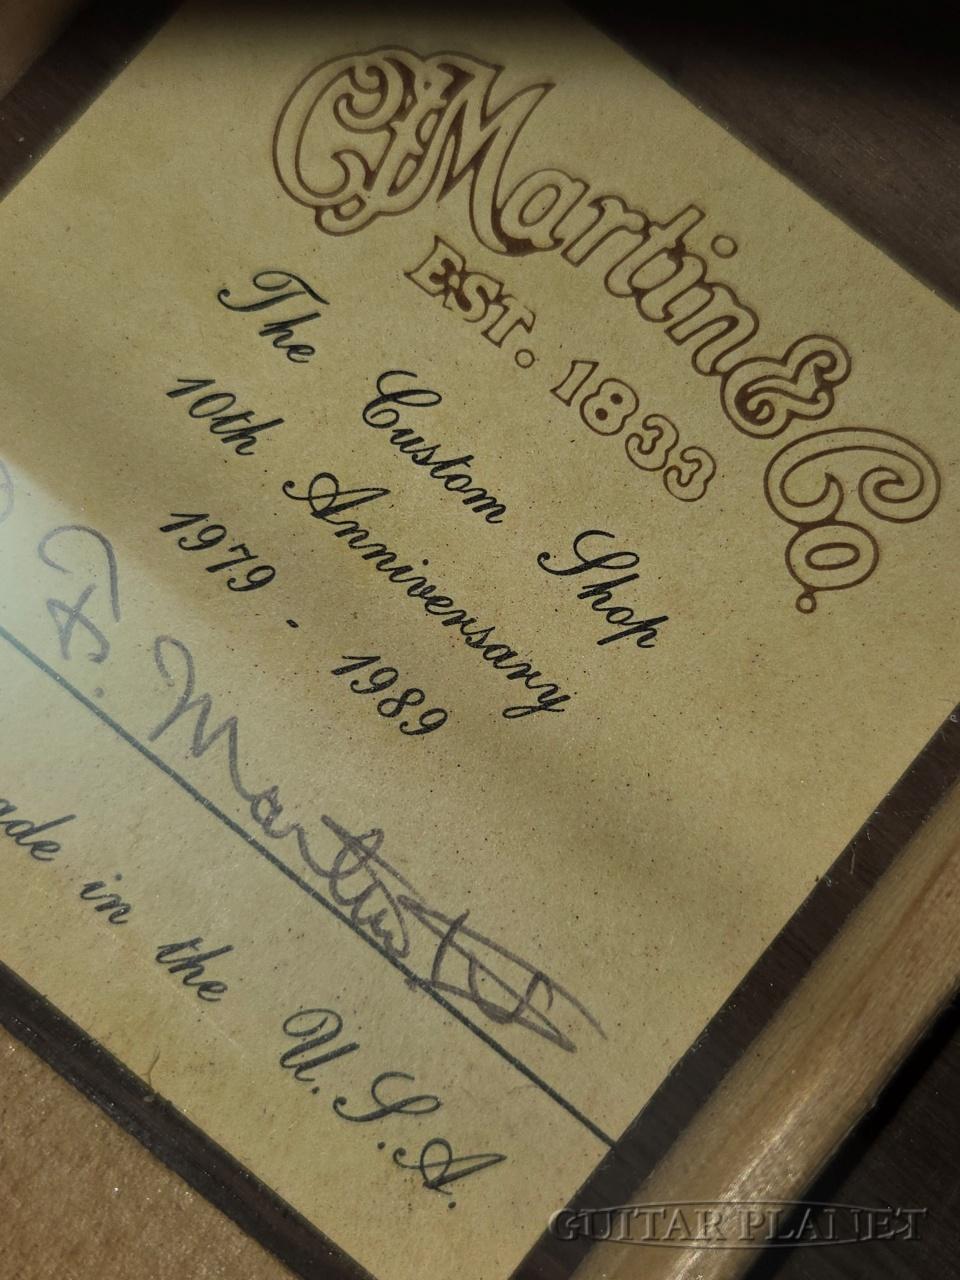 C.F. Martin & Co.
EST. 1833
The Custom Shop
10th Anniversary
1979 - 1989
C. F. Martin IV
ade in the U.S.A.
GUITAR PLANET